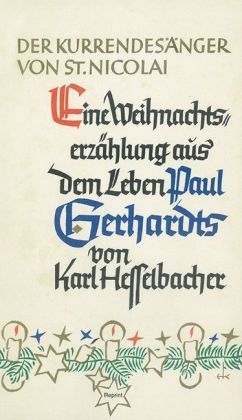 DER KURRENDESÄNGER
VON ST. NICOLAI
Eine Weihnachts-
erzählung aus
dem Leben Paul
Gerhardts
von
Karl Hesselbacher
Reprint